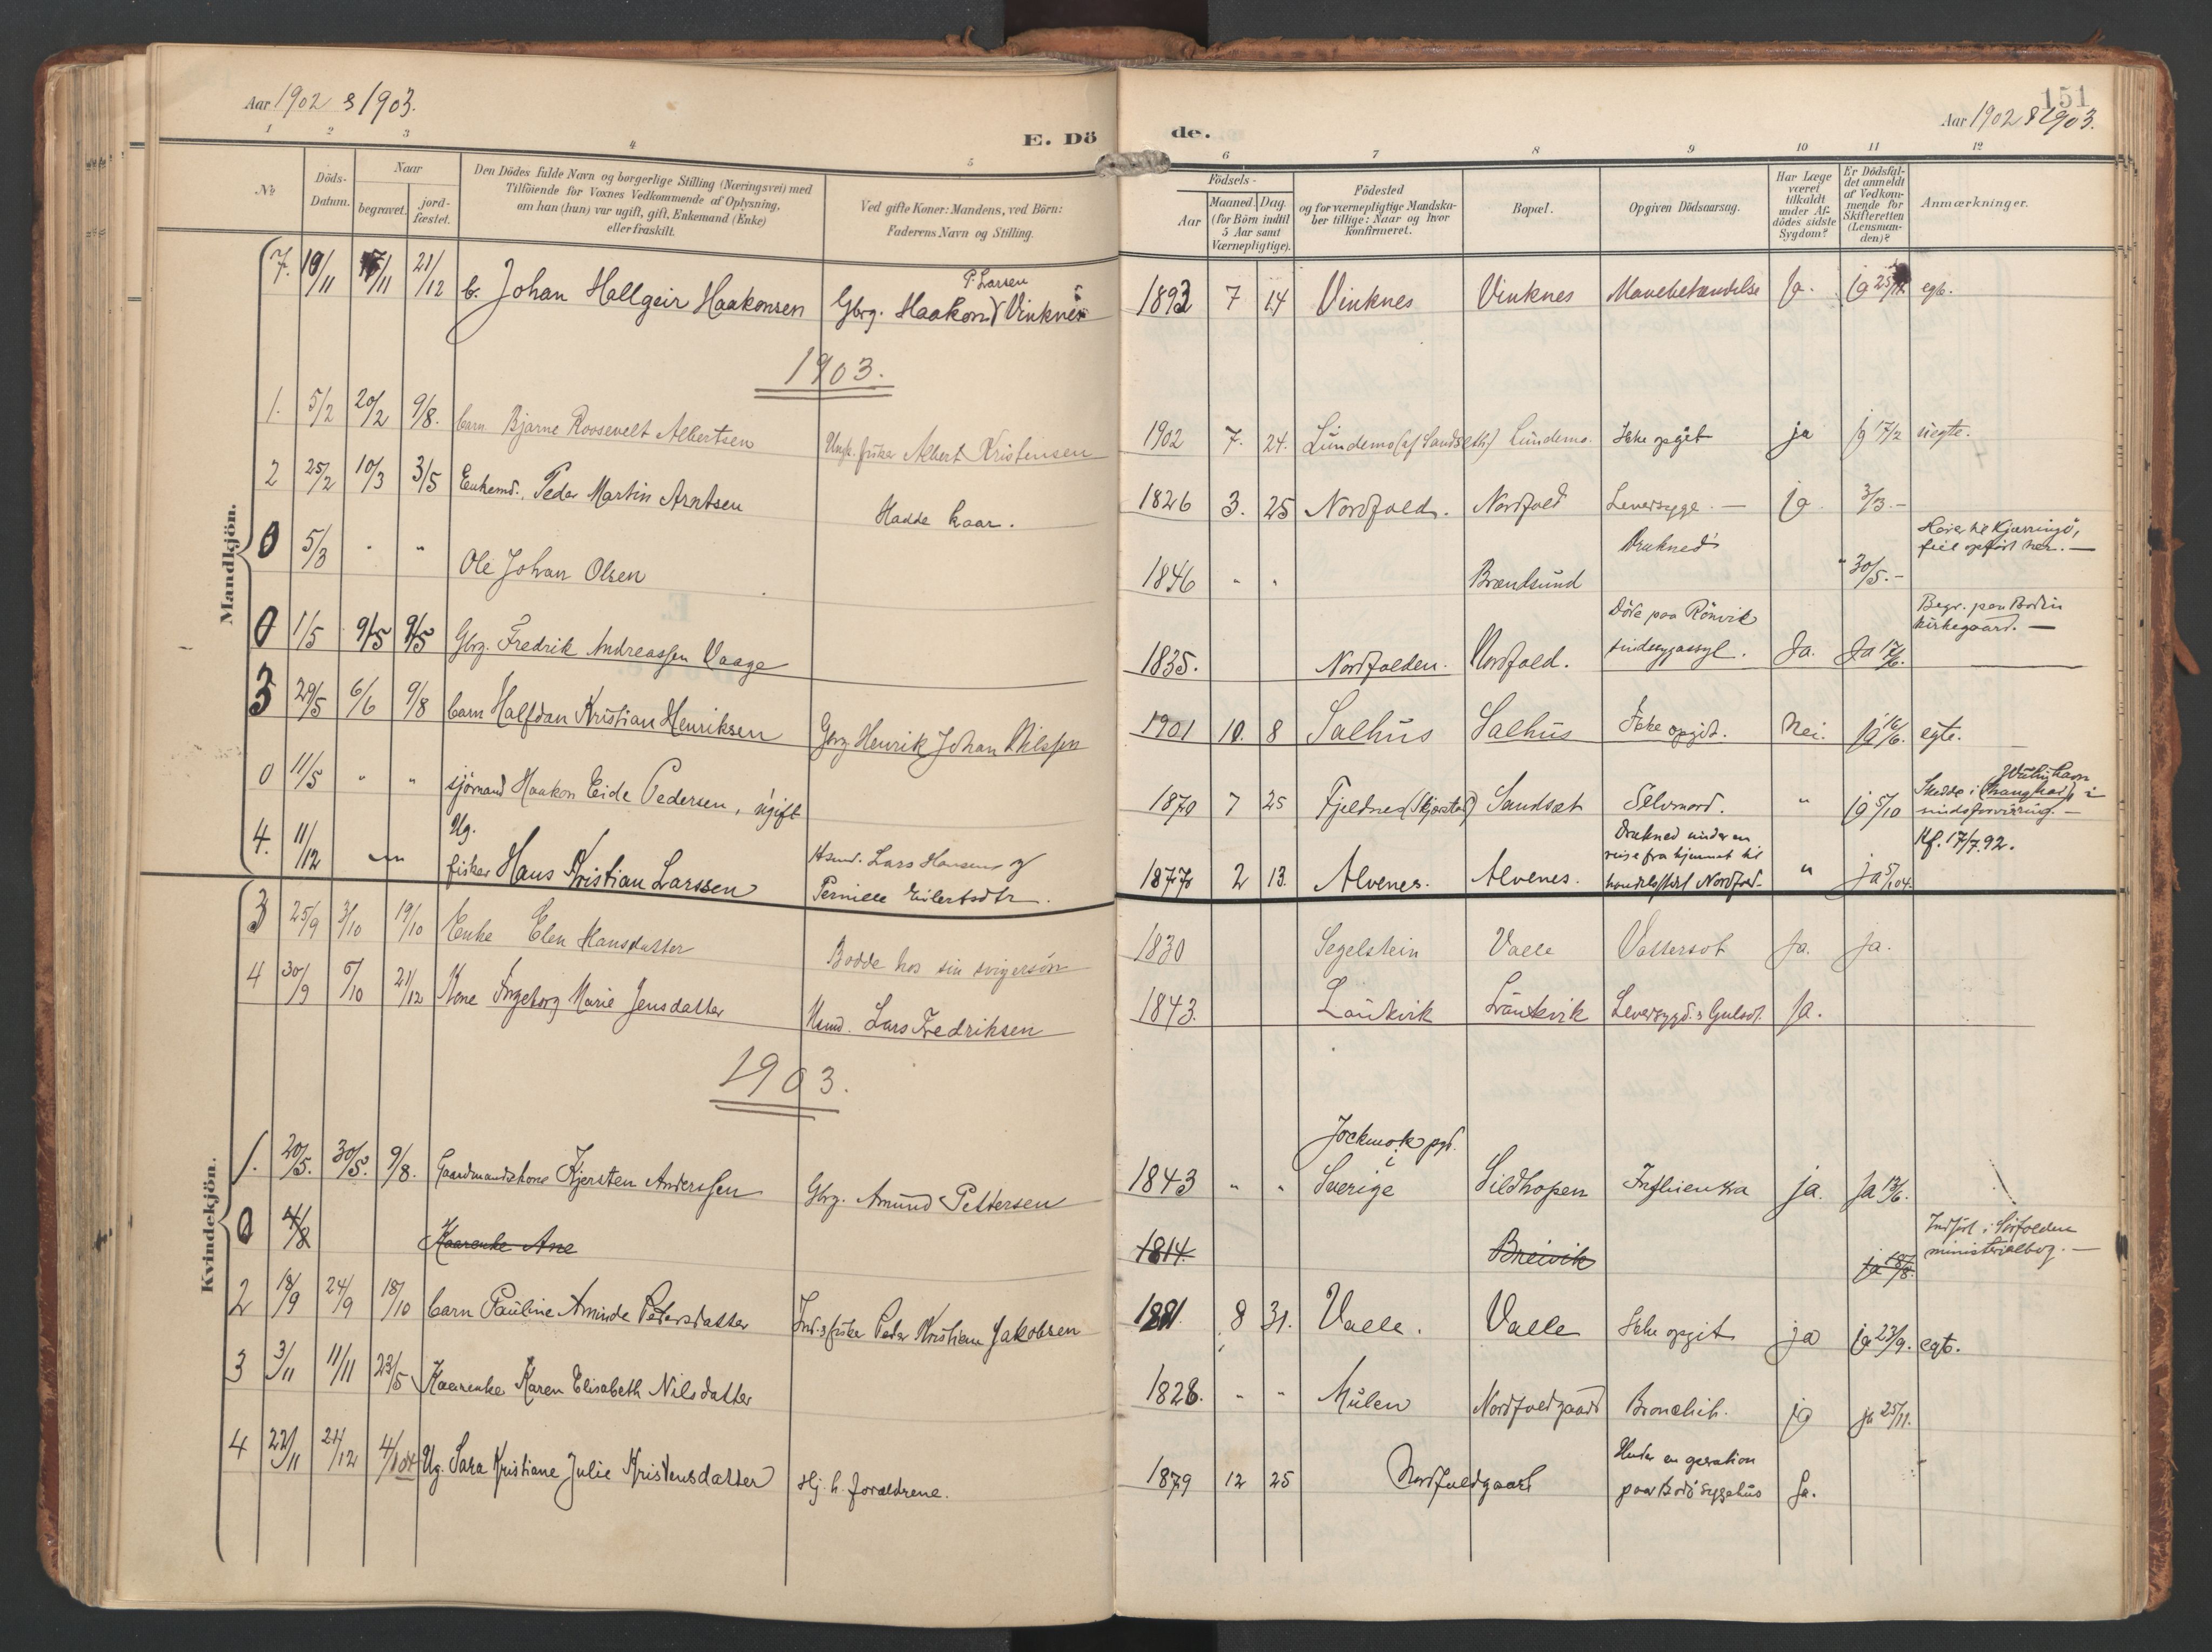 Aar 1902 & 1903.
E. Dö
1 2 3 4 5
No
Döds-Datum.
Naar
begravet.
jord-fæstet.
Den Dödes fulde Navn og borgerlige Stilling (Næringsvei) med
Tilföiende for Voxnes Vedkommende af Oplysning,
om han (hun) var ugift, gift, Enkemand (Enke)
eller fraskilt.
Ved gifte Koner: Mandens, ved Börn:
Faderens Navn og Stilling.
de.
151
Aar 1902 & 1903.
6 7 8 9 10 11 12
Födsels-
Aar
Maaned. Dag.
(for Börn indtil
5 Aar samt
Værnepligtige).
Födested
og for værnepligtige Mandska-
ber tillige: Naar og hvor
konfirmeret.
Bopæl.
Opgiven Dödsaarsag.
Har Læge
været
tilkaldt
under Af-
dödes sidste
Sygdom?
Er Dödsfal-
det anmeldt
af Vedkom-
mende for
Skifteretten
(Lensman-
den)?
Anmærkninger.
Mandkjön.
7. 10/11 17/11 21/12 b. Johan Hallgeir Haakonsen Gbrg. Haakon P. Larsen Vinknes 1893 7 14 Vinknes Vinknes Mavebetændelse Ja. ja 25/11. egte.
1903.
1. 5/2 20/2 9/8. barn Bjarne Roosevelt Albertsen Ungk. fisker Albert Kristensen 1902 7. 24. Lundemo (af Sandseth) Lundemo. Ikke opgit ja ja 17/2 uegte.
2 25/2 10/3 3/5 Enkemd. Peder Martin Arntsen Hadde kaar. 1826 3. 25 Nordfold. Nordfold Leversyge. — ja. 3/3. -
0 5/3 " " Ole Johan Olsen 1846 " " Brændsund Druknet " 30/5. - Hører til Kjærringö,
feil opfört her. —
0 1/5 9/5 9/5 Gbrg. Fredrik Andreassen Vaage 1835. Nordfolden. Nordfold. Döde paa Rönvik
sindssygeasyl. Ja. Ja 17/6. Begr. paa Bodin
kirkegaard. —
3 29/5 6/6 9/8 barn Halfdan Kristian Henriksen Gbrg Henrik Johan Nilssen 1901 10. 8 Salhus Salhus Ikke opgit. Nei. ja 16/6. egte.
0 11/5 " " sjömand Haakon Eide Pedersen, ugift 1870 7 25 Fjeldnes (Skjerstad) Sandset Selvmord. " ja 5/10 Skedde i Shanghai i
sindsforvirring. —
4. 11/12 " Ug.
fisker Hans Kristian Larssen Hsmd. Lars Hansen og
Pernille Eilertsdtr. 1877 2 13. Alvenes. Alvenes. Druknet under en
reise fra hjemmet til
handelssted Nordfold. " ja 5/1 04. Kf. 17/7.92.
Kvindekjön.
3 25/9 3/10 19/10 Enke Elen Hansdatter Bodde hos sin svigersön 1830 Segelstein Valle Vattersot Ja. Ja.
4 30/9 5/10 21/12 Kone Ingeborg Marie Jensdatter Hsmd. Lars Fredriksen 1843. Leversygd. & Gulsot. Ja.
1903.
1. 20/5. 30/5. 9/8. Gaardmandskone Kjersten Anderssen Gbrg. Amund Pettersen 1843 " " Jockmok pgd.
i
Sverige Sildhopen Influensa ja. Ja 13/6.
0 4/8 Kaarenke Ane 1814. Breivik ja 18/8. Indfört i Sörfoldens
ministerialbog. —
2 18/9 24/9 18/10 barn Pauline Aminde Pedersdatter Ind. & fisker Peder Kristian Jakobsen 1881. 8 31. Valle. Valle Ikke opgit ja ja 23/9. egte.
3 3/11 11/11 23/5 Kaarenke Karen Elisabeth Nilsdatter 1828. " " Mulen Nordfoldgaard Bronchit. ja ja 25/11.
4 22/11 21/12 4/1 04 Ug. Sara Kristiane Julie Kristensdatter Hj. h. forældrene. 1879 12 25 Nordfoldgaard Under en operation
paa Bodö Sygehus Ja.